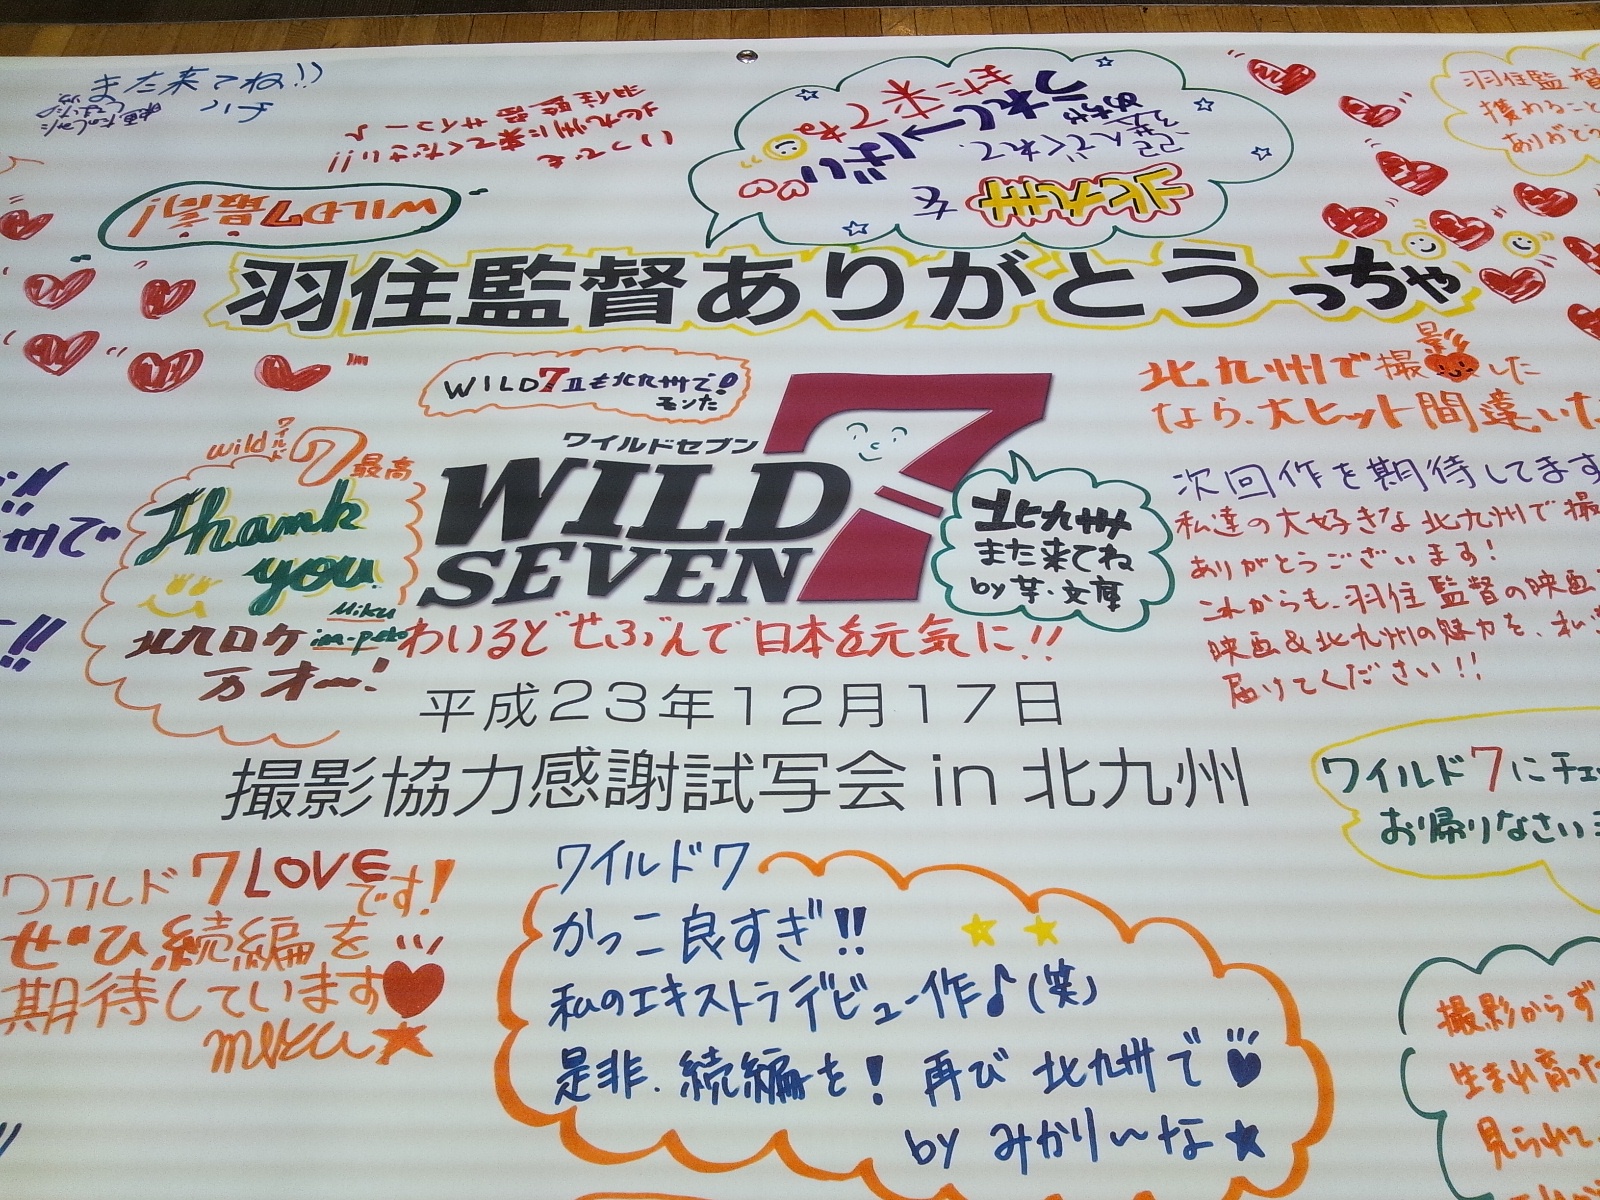 また来てね!!
ハチ
いつでも
北九州に来てください!!
羽住監督サイコー♪
北九州を
選んでくれて、
うれしー
ばい
また来てね
羽住監督
獲れること
ありがとう
WILD7最高!
羽住監督ありがとうっちゃ
WILD7Ⅱも北九州で!
モンた
ワイルドセブン
WILD
SEVEN
7
北九州
また来てね
by 芋・文庫
wild ワイルド 7 最高
Thank
you
Miku
im-peko
北九ロケ
万才ー!
わいるどせぶんで日本を元気に!!
平成23年12月17日
撮影協力感謝試写会 in 北九州
北九州で撮影した
なら、大ヒット間違いた
次回作を期待してます
私達の大好きな北九州で撮
ありがとうございます!
これからも、羽住監督の映画
映画&北九州の魅力を、私達
届けてください!!
ワイルド7にチェ
お帰りなさい
ワイルド7 LOVEです!
ぜひ続編を
期待しています
ワイルド7
かっこ良すぎ!!
私のエキストラデビュー作♪(笑)
是非、続編を! 再び 北九州で
by みかりーな★
撮影からず
生まれ育った
見られて